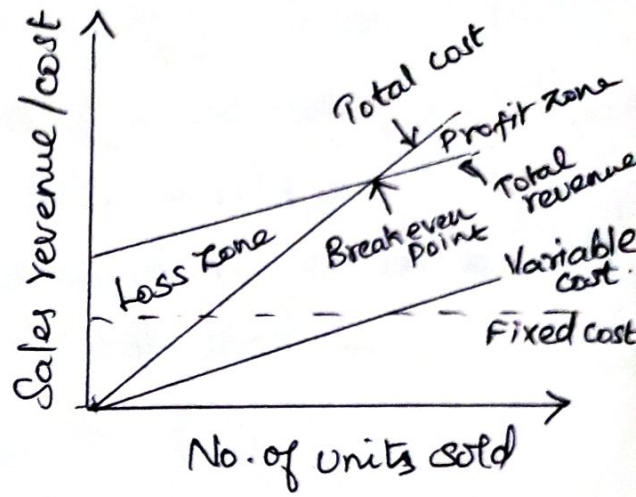 Sales revenue/cost
Total cost
Profit zone
Total
revenue
Break even
point
Loss zone
Variable
cost.
Fixed cost
No. of units sold